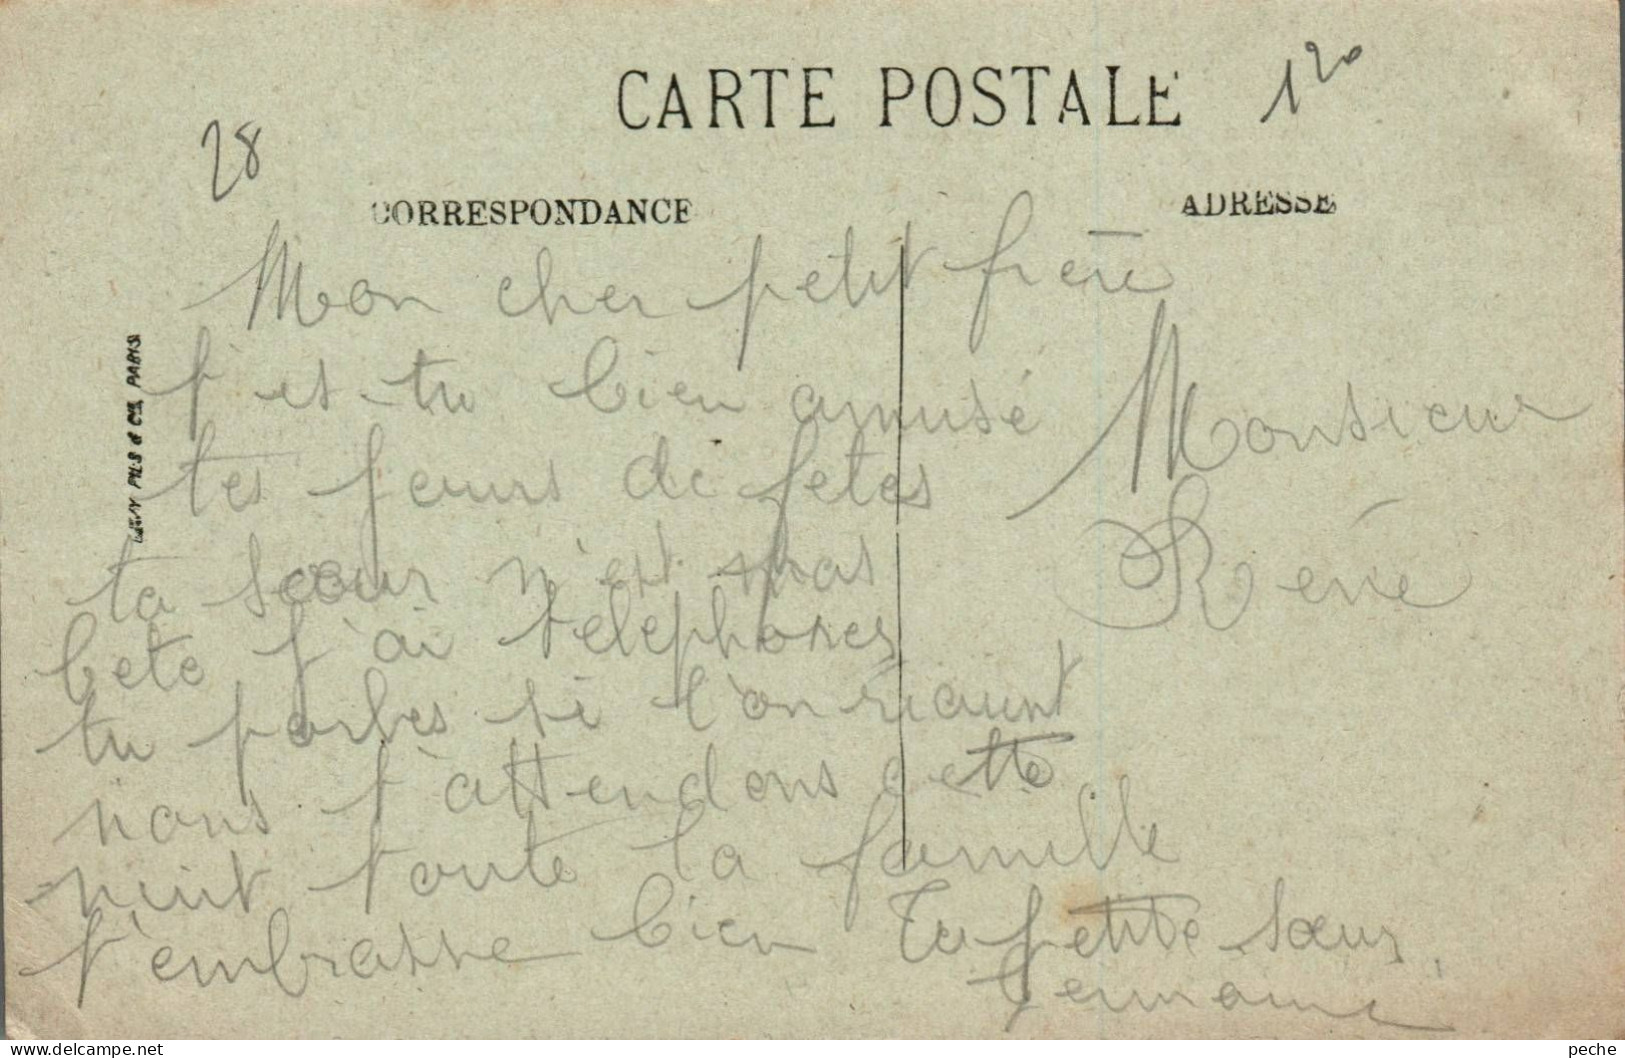 CARTE POSTALE
1 20
28
CORRESPONDANCE
ADRESSE
Mon cher petit frère
t'es-tu bien amusé
tes jours de fetes
ta sœur n'est pas
bete j'ai telephones
tu parles si l'on riaint
nous t'attendons cette
nuit toute la famille
t'embrasse bien Ta petite sœur
Germaine
Monsieur
René
LEVY FILS & CIE, PARIS
peche